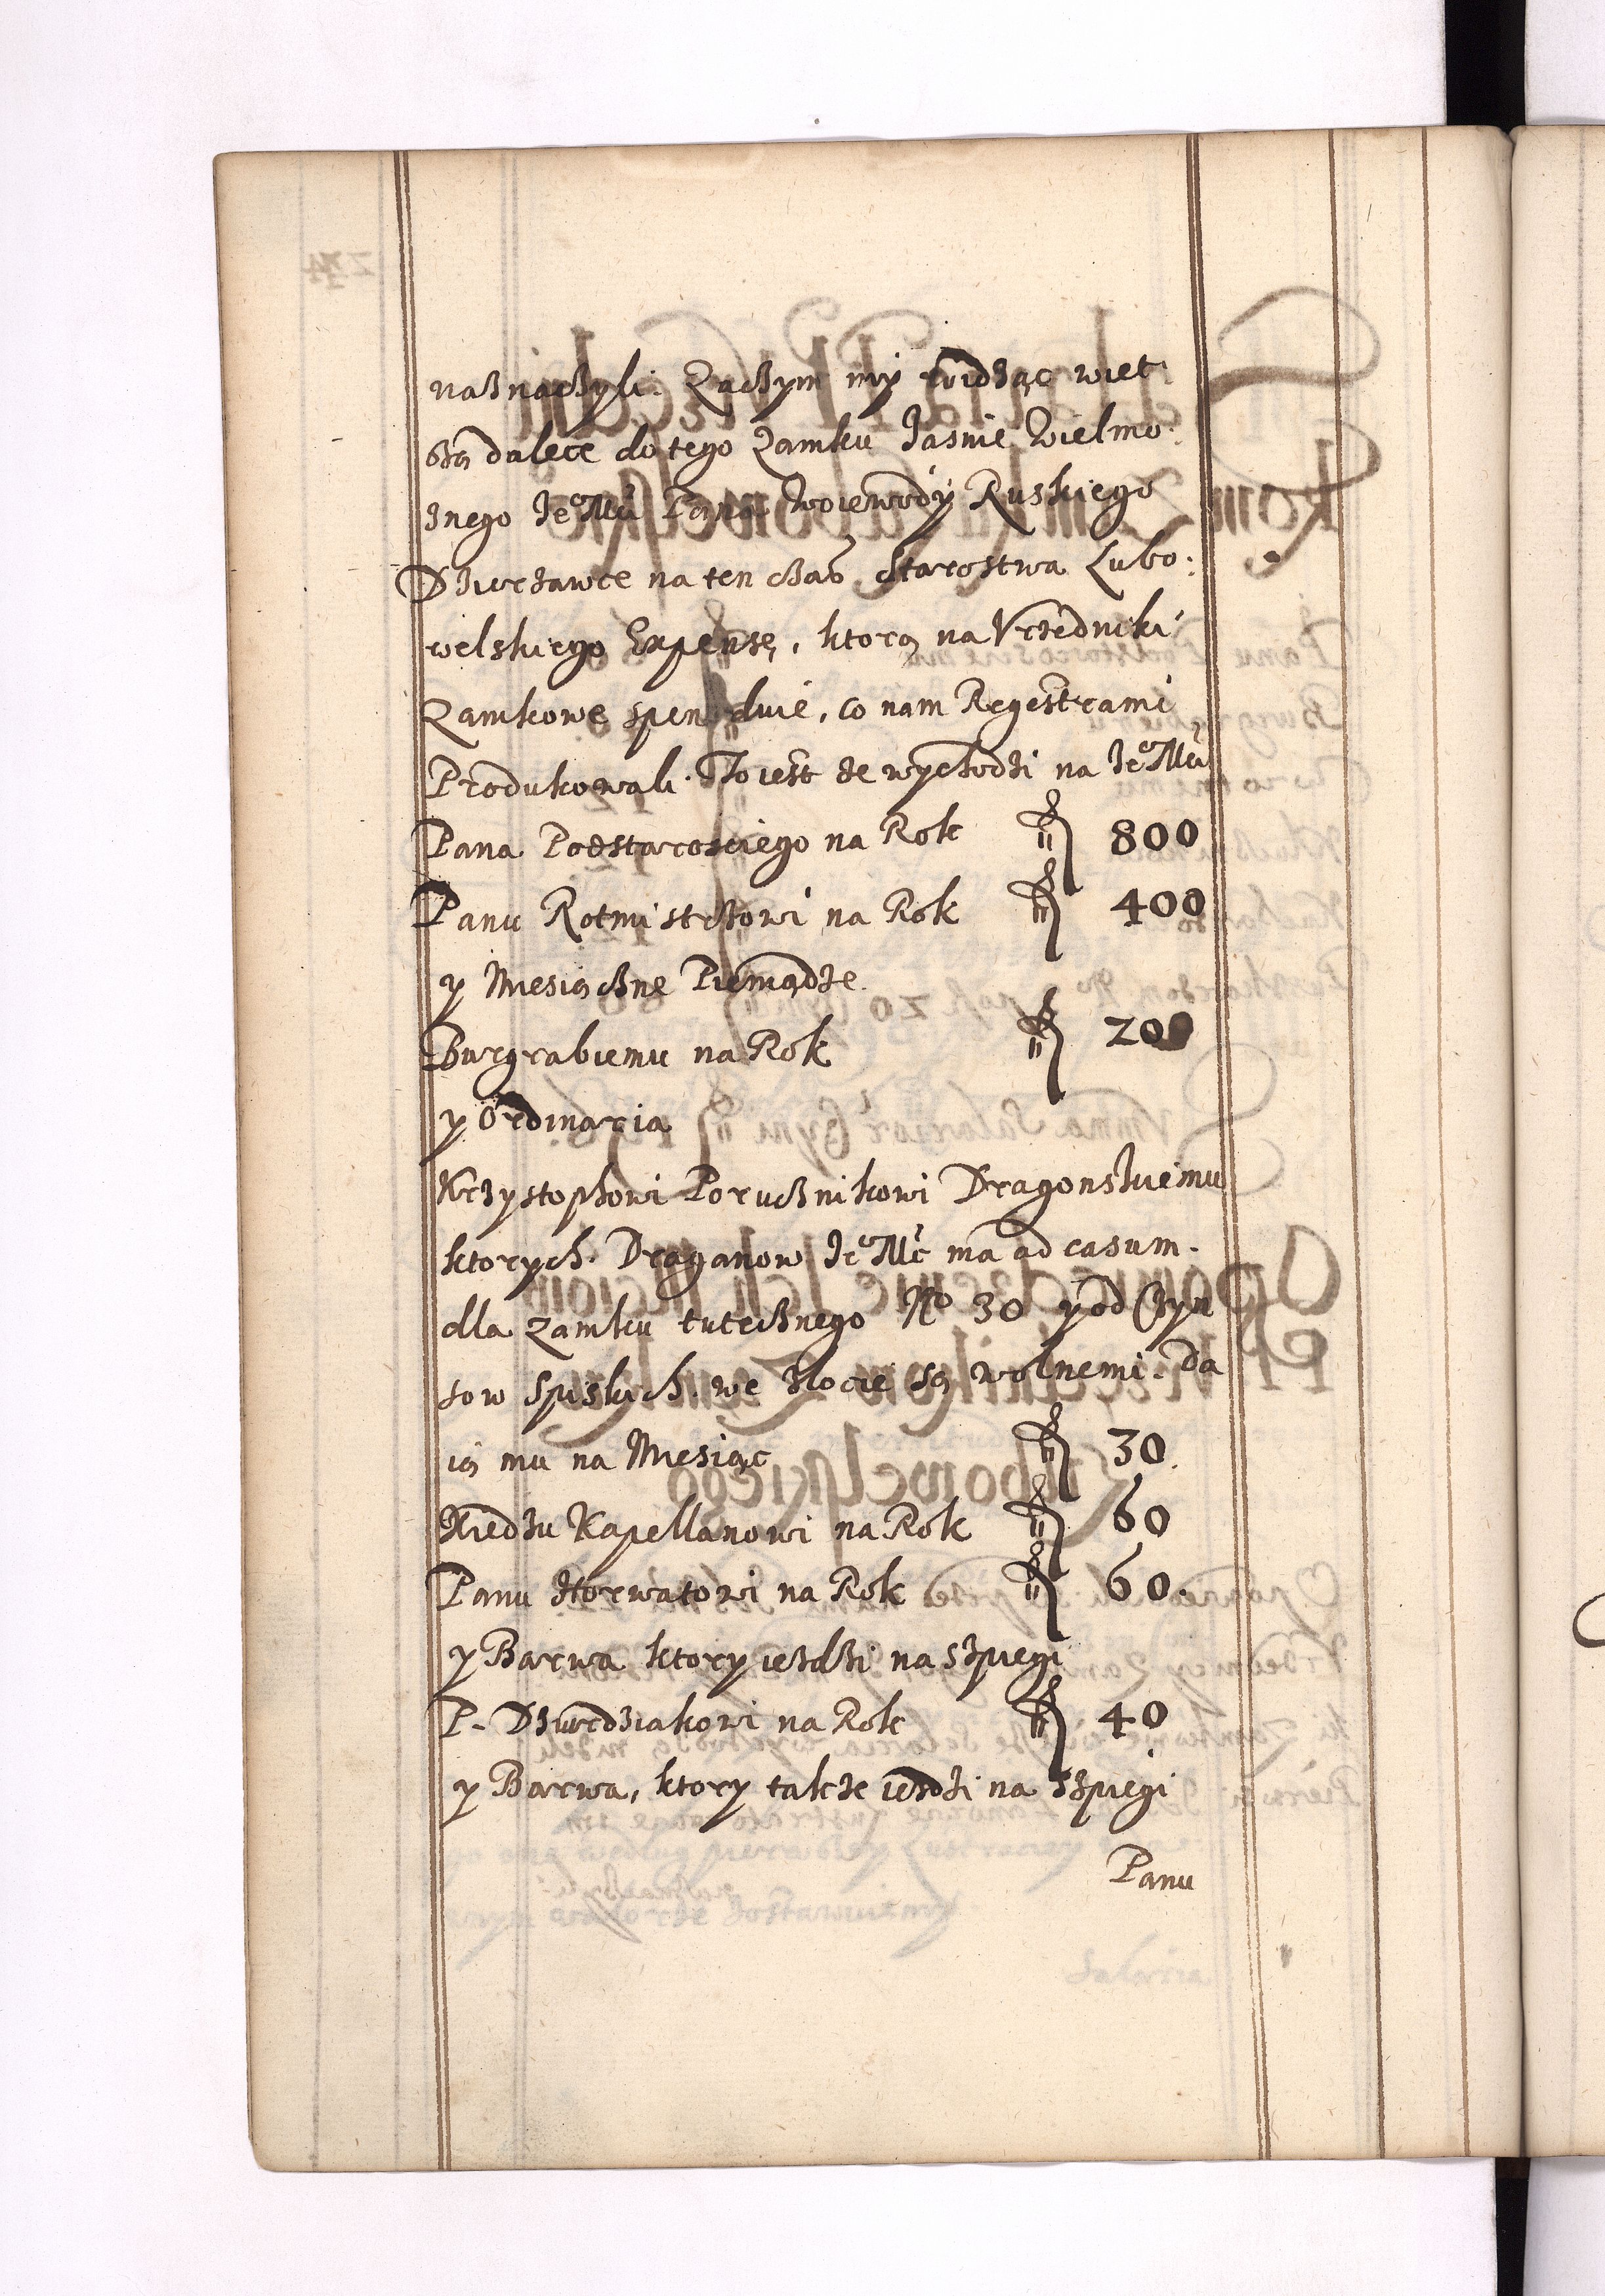 naznaczyli. Zaczym my widząc więt
szą dalece do tego Zamku Jasnie Wielmo
znego Je͠Mci Pana Woiewody Ruskiego
Dzierzawce na ten czas Starostwa Lubo:
welskiego Expensę, ktorą na Vrzedniki
Zamkowe spenduie, co nam Regestrami
Produkowali. To iest ze wychodzi na JeMci
Pana Podstarosciego na Rok fl 800
Panu Rotmistrzowi na Rok fl 400
y Miesiączne Pieniądze.
Burgrabiemu na Rok fl 200
y Ordinaria
Krzysztophowi Porucznikowi Dragonskiemu
ktorych Draganow JeMc ma ad casum.
dla Zamku tutecznego No 30 y od Czyn
szow Spiskich. we Złocie są wolnemi. Da
ią mu na Miesiąc fl 30.
Xiedzu Kapellanowi na Rok fl 60
Panu Horwatowi na Rok fl 60.
y Barwa ktory iezdzi na Szpiegi
P. Dziurdziakowi na Rok fl 40
y Barwa, ktory takze iezdzi na Szpiegi
Panu